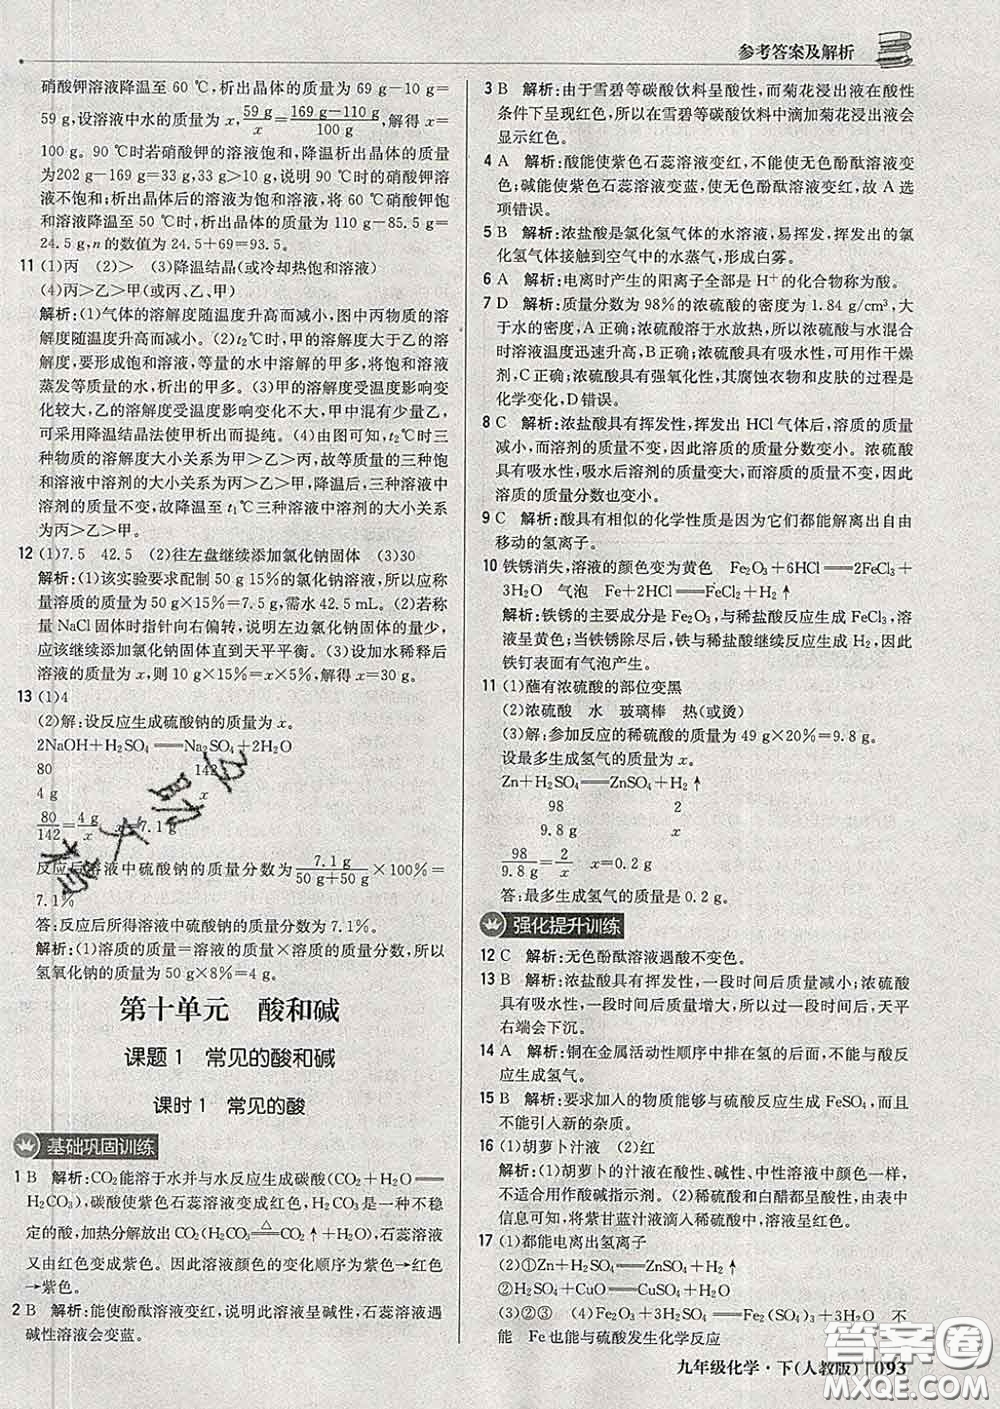 参考答案及解析
硝酸钾溶液降温至 60 ℃,析出晶体的质量为 69 g-10 g=
59 g,设溶液中水的质量为 x, 59 g/x = (169 g-110 g)/100 g ,解得 x=
100 g。90 ℃时若硝酸钾的溶液饱和,降温析出晶体的质量
为202 g-169 g=33 g,33 g>10 g,说明 90 ℃时的硝酸钾溶液
不饱和;析出晶体后的溶液为饱和溶液,将 60 ℃硝酸钾饱
和溶液降温至 50 ℃时,析出晶体的质量为 110 g-85.5 g=
24.5 g,n 的数值为 24.5+69=93.5。
11 (1)丙 (2)> (3)降温结晶(或冷却热饱和溶液)
(4)丙>乙>甲(或丙、乙、甲)
解析:(1)气体的溶解度随温度升高而减小,图中丙物质的溶
解度随温度升高而减小。(2)t₂℃时,甲的溶解度大于乙的溶
解度,要形成饱和溶液,等量的水中溶解的甲多,恒温饱和溶液
蒸发等质量的水,析出的甲多。(3)甲的溶解度受温度影响变
化较大,乙的溶解度受温度影响变化不大,甲中混有少量乙,
可采用降温结晶法使甲析出而提纯。(4)由图可知,t₂℃时三
种物质的溶解度大小关系为甲>乙>丙,故等质量的三种饱
和溶液中溶剂的大小关系为丙>乙>甲,降温后,三种溶液中
溶剂的质量不变,故降温至 t₁℃三种溶液中溶剂的大小关系
为丙>乙>甲。
12 (1)7.5 42.5 (2)往左盘继续添加氯化钠固体 (3)30
解析:(1)该实验要求配制 50 g 15%的氯化钠溶液,所以应称
量溶质的质量为 50 g×15%=7.5 g,需水 42.5 mL。(2)若称
量 NaCl 固体时指针向右偏转,说明左边氯化钠固体的量少,
应该继续添加氯化钠固体直到天平平衡。(3)设加水稀释后
溶液的质量为 x,则 10 g×15%=x×5%,解得 x=30 g。
13 (1)4
(2)解:设反应生成硫酸钠的质量为 x。
2NaOH+H₂SO₄══Na₂SO₄+2H₂O
80 142
4 g x
80/142 = 4 g/x x=7.1 g
反应后溶液中硫酸钠的质量分数为 7.1 g/(50 g+50 g) ×100%=
7.1%
答:反应后所得溶液中硫酸钠的质量分数为 7.1%。
解析:(1)溶质的质量=溶液的质量×溶质的质量分数,所以
氢氧化钠的质量为 50 g×8%=4 g。
第十单元 酸和碱
课题 1 常见的酸和碱
课时 1 常见的酸
基础巩固训练
1 B 解析:CO₂能溶于水并与水反应生成碳酸(CO₂+H₂O══
H₂CO₃),碳酸使紫色石蕊溶液变成红色,H₂CO₃是一种不稳
定的酸,加热分解放出 CO₂(H₂CO₃ △══ CO₂↑+H₂O),石蕊溶液
又由红色变成紫色。因此溶液颜色的变化顺序为紫色→红色
→紫色。
2 B 解析:能使酚酞溶液变红,说明此溶液呈碱性,石蕊溶液遇
碱性溶液会变蓝。
3 B 解析:由于雪碧等碳酸饮料呈酸性,而菊花浸出液在酸性
条件下呈现红色,所以在雪碧等碳酸饮料中滴加菊花浸出液会
显示红色。
4 A 解析:酸能使紫色石蕊溶液变红,不能使无色酚酞溶液变
色;碱能使紫色石蕊溶液变蓝,使无色酚酞溶液变红,故 A 选
项错误。
5 B 解析:浓盐酸是氯化氢气体的水溶液,易挥发,挥发出的氯
化氢气体接触到空气中的水蒸气,形成白雾。
6 A 解析:电离时产生的阳离子全部是 H⁺的化合物称为酸。
7 D 解析:质量分数为 98%的浓硫酸的密度为 1.84 g/cm³,大
于水的密度,A正确;浓硫酸溶于水放热,所以浓硫酸与水混合
时溶液温度迅速升高,B正确;浓硫酸具有吸水性,可用作干燥
剂,C正确;浓硫酸具有强氧化性,其腐蚀衣物和皮肤的过程是
化学变化,D错误。
8 C 解析:浓盐酸具有挥发性,挥发出 HCl 气体后,溶质的质量
减小,而溶剂的质量不变,因此溶质的质量分数变小。浓硫酸
具有吸水性,吸水后溶剂的质量变大,而溶质的质量不变,因此
溶质的质量分数也变小。
9 C 解析:酸具有相似的化学性质是因为它们都能解离出自由
移动的氢离子。
10 铁锈消失,溶液的颜色变为黄色 Fe₂O₃+6HCl══2FeCl₃+
3H₂O 气泡 Fe+2HCl══FeCl₂+H₂↑
解析:铁锈的主要成分是 Fe₂O₃,与稀盐酸反应生成 FeCl₃,溶
液呈黄色;当铁锈除尽后,铁与稀盐酸继续反应生成 H₂,因此
铁钉表面有气泡产生。
11 (1)蘸有浓硫酸的部位变黑
(2)浓硫酸 水 玻璃棒 热(或烫)
(3)解:参加反应的稀硫酸的质量为 49 g×20%=9.8 g。
设最多生成氢气的质量为 x。
Zn+H₂SO₄══ZnSO₄+H₂↑
98 2
9.8 g x
98/9.8 g = 2/x x=0.2 g
答:最多生成氢气的质量是 0.2 g。
强化提升训练
12 C 解析:无色酚酞溶液遇酸不变色。
13 B 解析:浓盐酸具有挥发性,一段时间后质量减小,浓硫酸
具有吸水性,一段时间后质量增大,所以过一段时间后,天平
右端会下沉。
14 A 解析:铜在金属活动性顺序中排在氢的后面,不能与酸反
应生成氢气。
15 B 解析:要求加入的物质能够与硫酸反应生成 FeSO₄,而且
不能引入新的杂质。
16 (1)胡萝卜汁液 (2)红
解析:(1)胡萝卜的汁液在酸性、碱性、中性溶液中颜色一样,
不适合用作酸碱指示剂。(2)稀硫酸和白醋都呈酸性,由表中
信息可知,将紫甘蓝汁液滴入稀硫酸中,溶液呈红色。
17 (1)都能电离出氢离子
(2)①Zn+H₂SO₄══ZnSO₄+H₂↑
②H₂SO₄+CuO══CuSO₄+H₂O
(3)②③ (4)Fe₂O₃+3H₂SO₄══Fe₂(SO₄)₃+3H₂O 不
能 Fe也能与硫酸发生化学反应
九年级化学·下(人教版) 093
答案圈
MXQE.COM